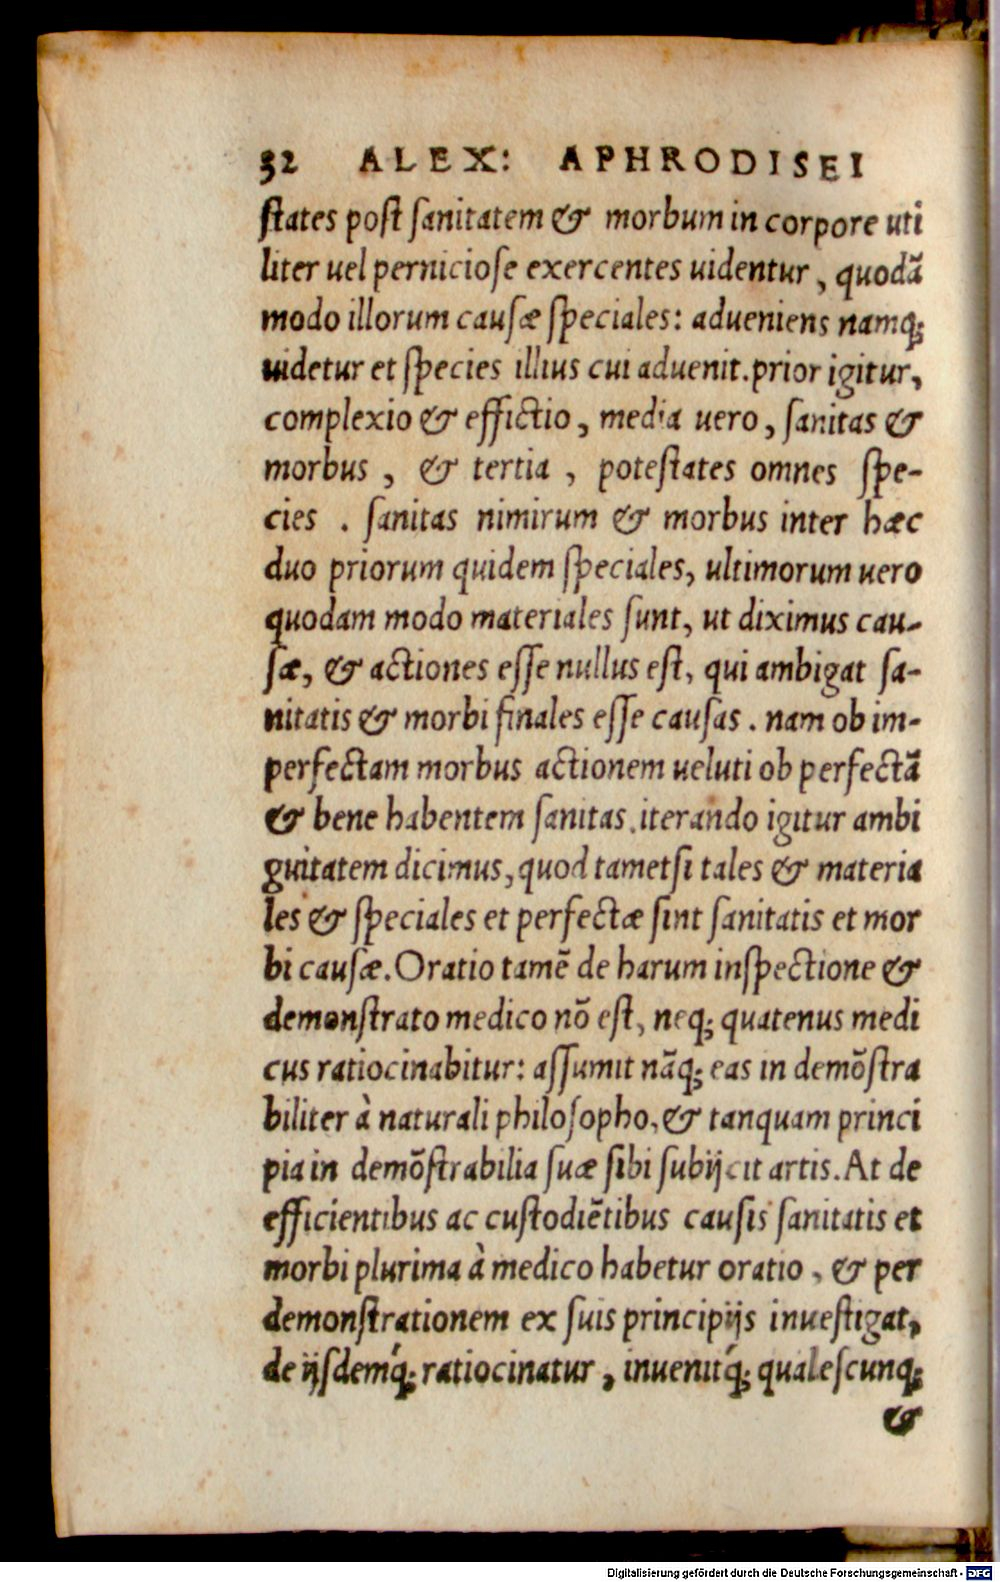 32 ALEX: APHRODISEI
ſtates poſt ſanitatem & morbum in corpore uti
liter uel pernicioſe exercentes uidentur, quodã
modo illorum cauſæ ſpeciales: adueniens namq;
uidetur et ſpecies illius cui aduenit. prior igitur,
complexio & effictio, media uero, ſanitas &
morbus, & tertia, poteſtates omnes ſpe-
cies. ſanitas nimirum & morbus inter hæc
duo priorum quidem ſpeciales, ultimorum uero
quodam modo materiales ſunt, ut diximus cau-
ſæ, & actiones eſſe nullus eſt, qui ambigat ſa-
nitatis & morbi finales eſſe cauſas. nam ob im-
perfectam morbus actionem ueluti ob perfectã
& bene habentem ſanitas. iterando igitur ambi
guitatem dicimus, quod tametſi tales & materia
les & ſpeciales et perfectæ ſint ſanitatis et mor
bi cauſæ. Oratio tamẽ de harum inſpectione &
demonſtrato medico nõ eſt, neq; quatenus medi
cus ratiocinabitur: aſſumit nãq; eas in demõſtra
biliter à naturali philoſopho, & tanquam princi
pia in demõſtrabilia ſuæ ſibi ſubijcit artis. At de
efficientibus ac cuſtodiẽtibus cauſis ſanitatis et
morbi plurima à medico habetur oratio, & per
demonſtrationem ex ſuis principijs inueſtigat,
de ijſdemq́; ratiocinatur, inuenitq́; qualeſcunq;
&
Digitalisierung gefördert durch die Deutsche Forschungsgemeinschaft - DFG